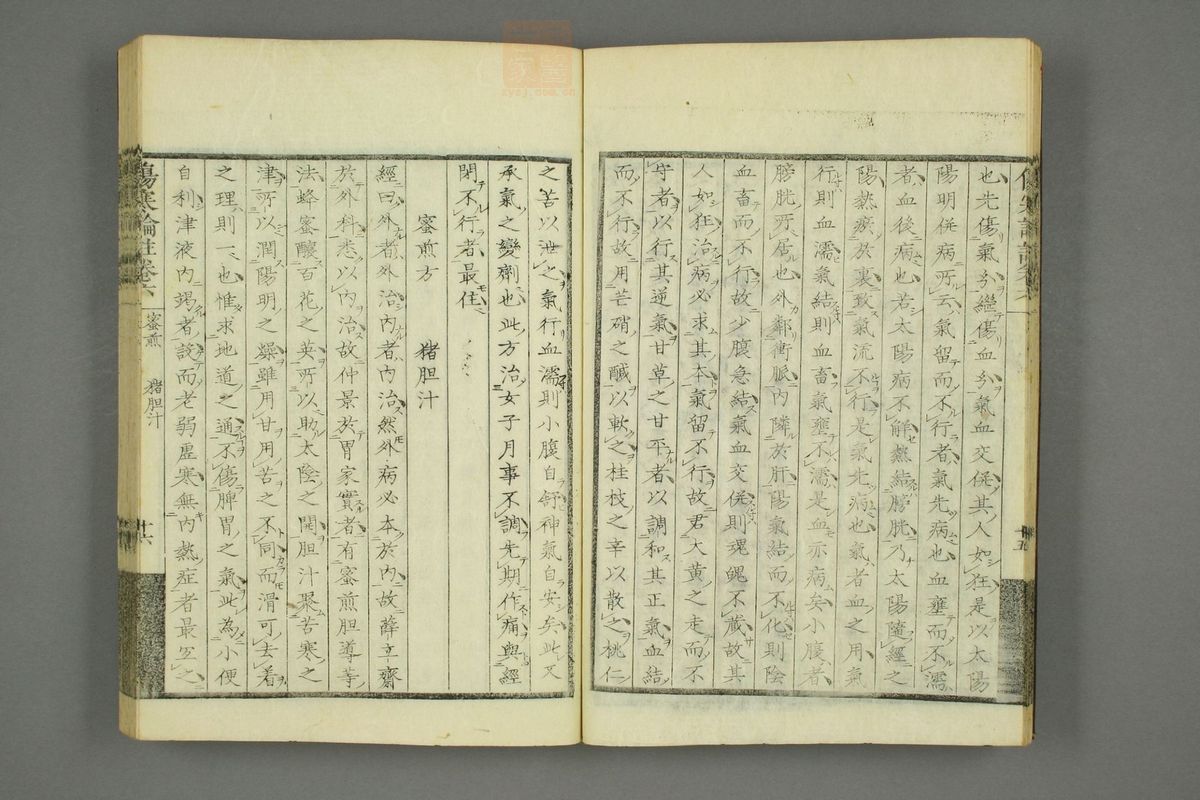 也先傷氣分繼傷血分氣血交併其人如狂是以太陽
陽明併病所云氣留而不行者氣先病也血壅而不濡
者血後病也若太陽病不解熱結膀胱乃太陽隨經之
陽熱瘀於裏致氣流不行是氣先病也氣者血之用氣
行則血濡氣結則血畜氣壅不濡是血亦病矣小腹者
膀胱所居也外鄰衝脈內隣於肝陽氣結而不化則陰
血畜而不行故少腹急結氣血交併則魂魄不藏故其
人如狂治病必求其本氣留不行故君大黃之走而不
守者以行其逆氣甘草之甘平者以調和其正氣血結
而不行故用芒硝之鹹以軟之桂枝之辛以散之桃仁
之苦以泄之氣行血濡則小腹自舒神氣自安矣此又
承氣之變劑也此方治女子月事不調先期作痛與經
閉不行者最佳
蜜煎方 猪胆汁
經曰外者外治內者內治然外病必本於內故薛立齋
於外科悉以內治故仲景於胃家實者有蜜煎胆導等
法蜂蜜釀百花之英所以助太陰之開胆汁聚苦寒之
津所以潤陽明之燥雖用甘用苦之不同而滑可去着
之理則一也惟求地道之通不傷脾胃之氣此為小便
自利津液內竭者設而老弱虛寒無內熱症者最宜之
傷寒論註卷六 蜜煎 猪胆汁 十六
十五